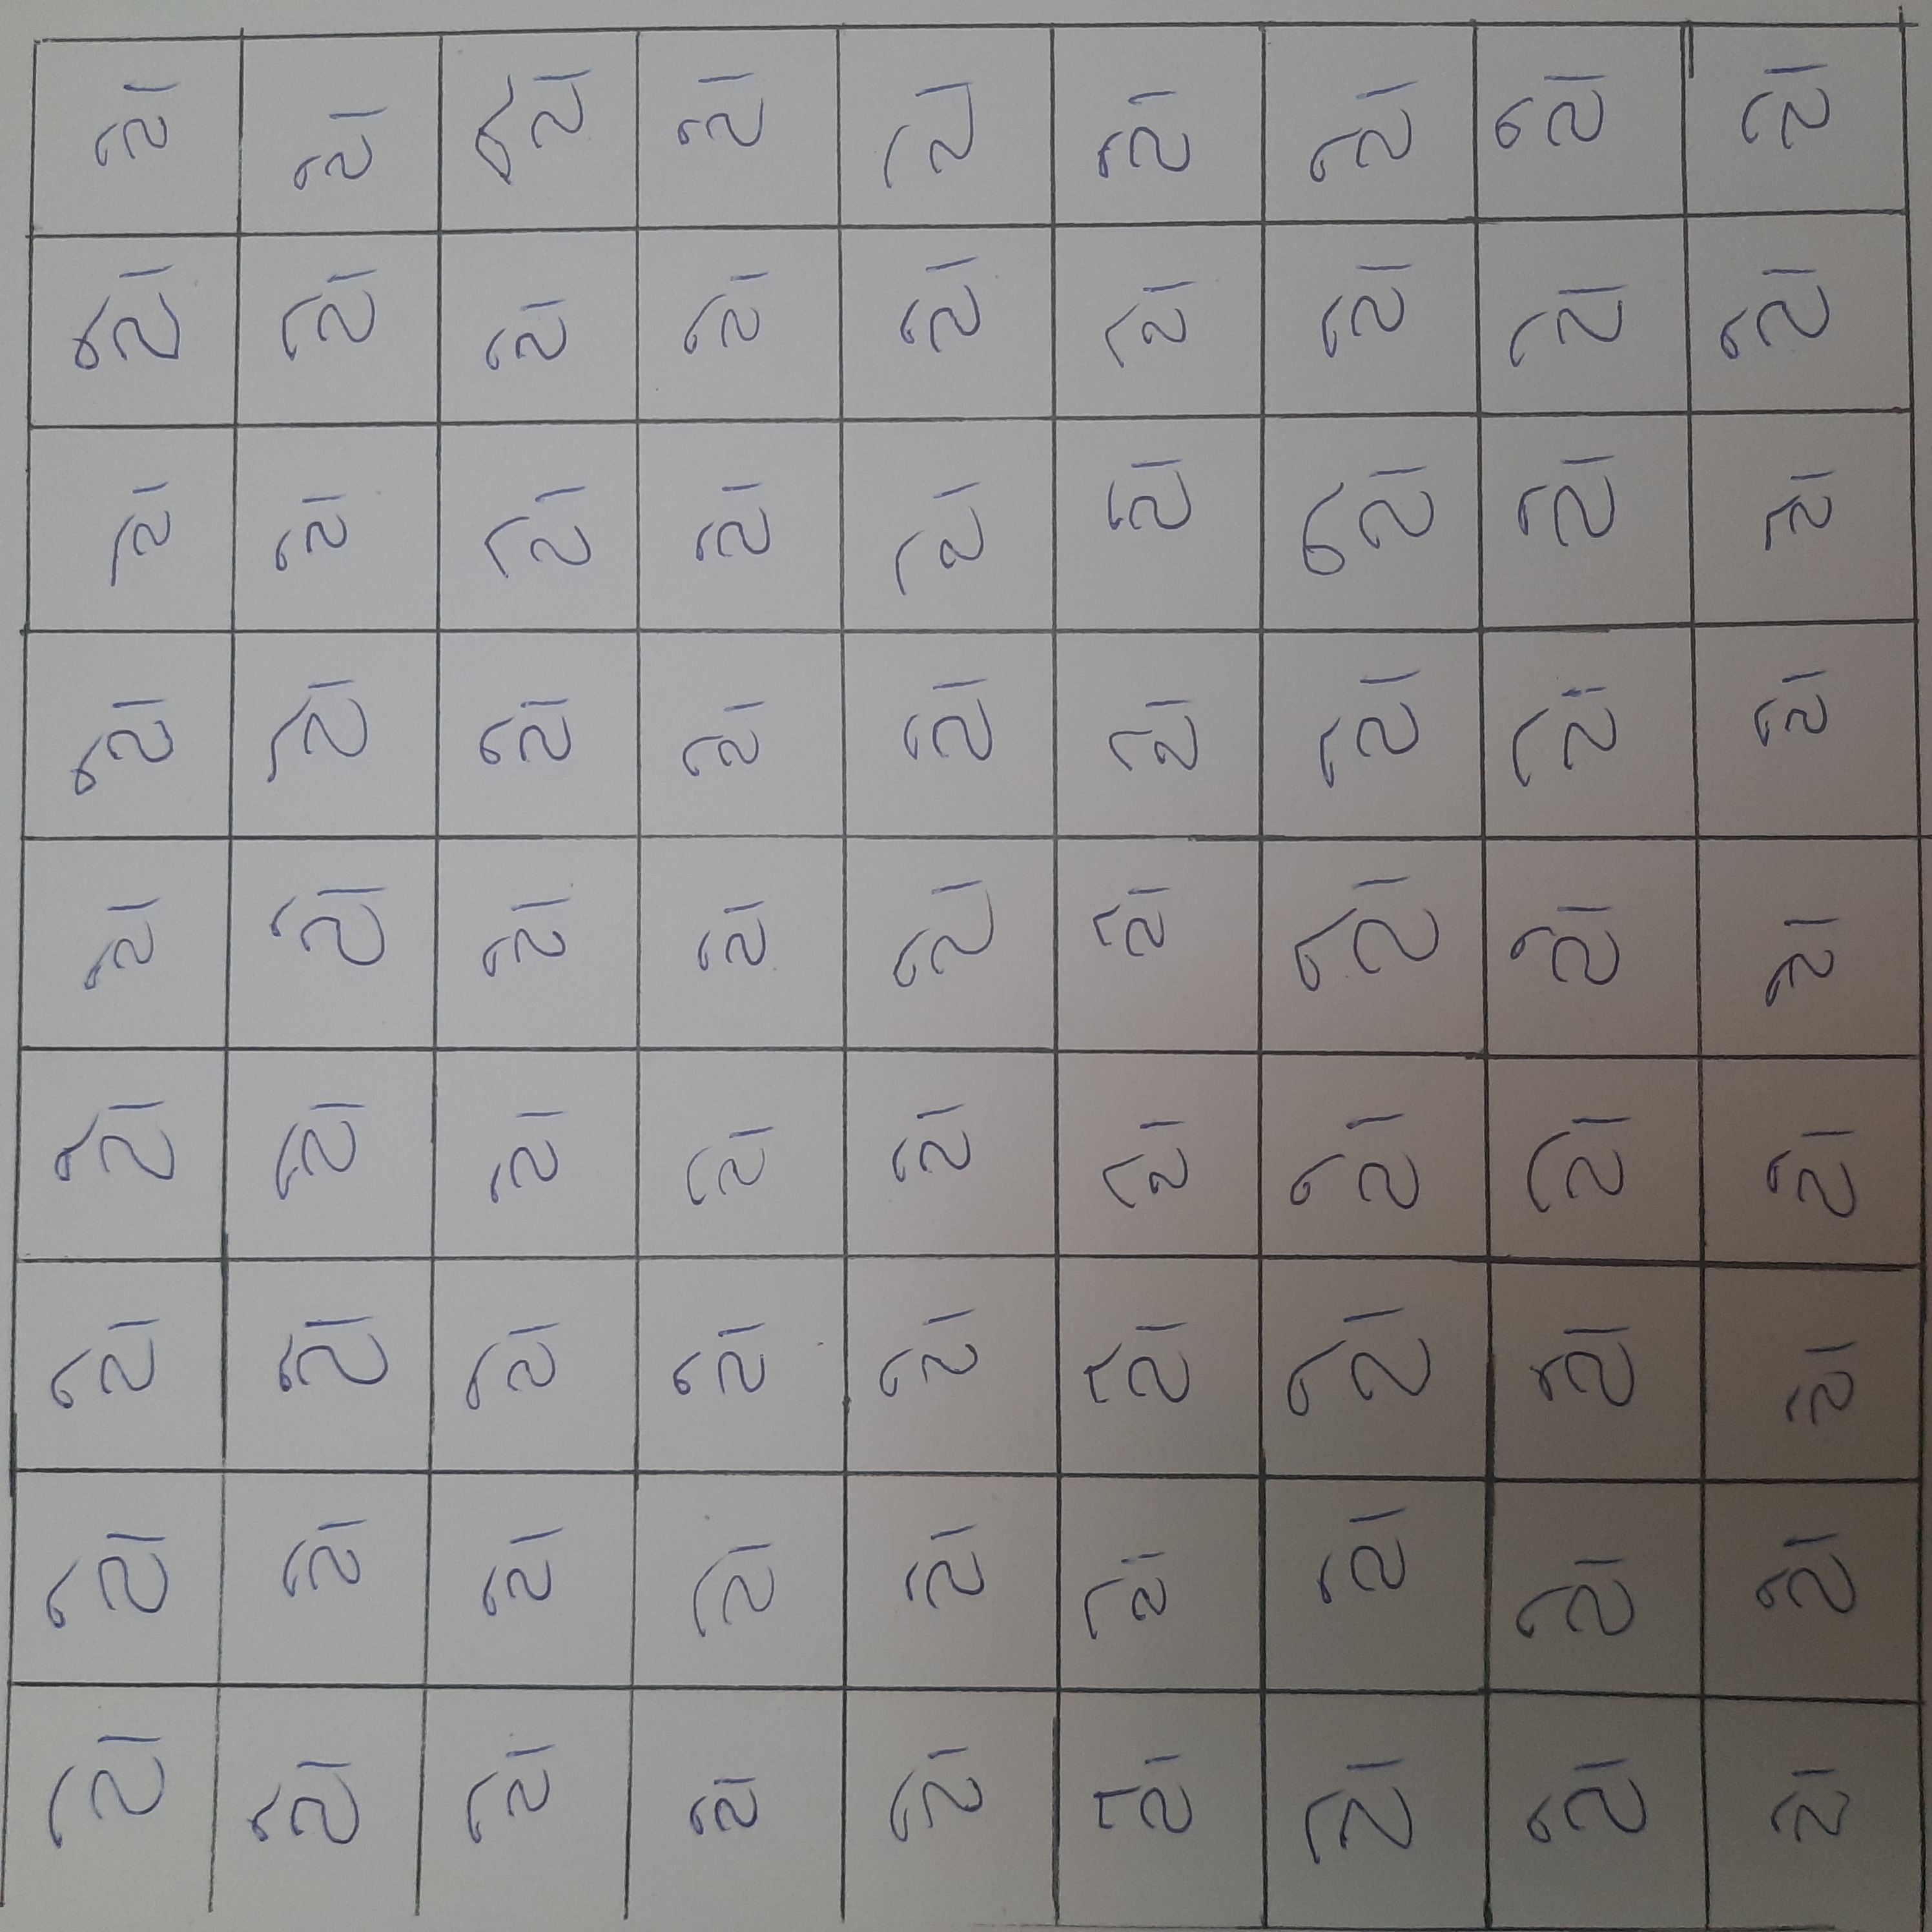 ટે ટો ટો ટો ટો ટો ટો ટો ટો
ટો ટો ટો ટો ટો ટો ટો ટો ટો
ટો ટો ટો ટો ટો ટો ટો ટો ટો
ટો ટો ટો ટો ટો ટો ટો ટો ટો
ટો ટો ટો ટો ટો ટો ટો ટો ટો
ટો ટો ટો ટો ટો ટો ટો ટો ટો
ટો ટો ટો ટો ટો ટો ટો ટો ટો
ટો ટો ટો ટો ટો ટો ટો ટો ટો
ટો ટો ટો ટો ટો ટો ટો ટો ટો